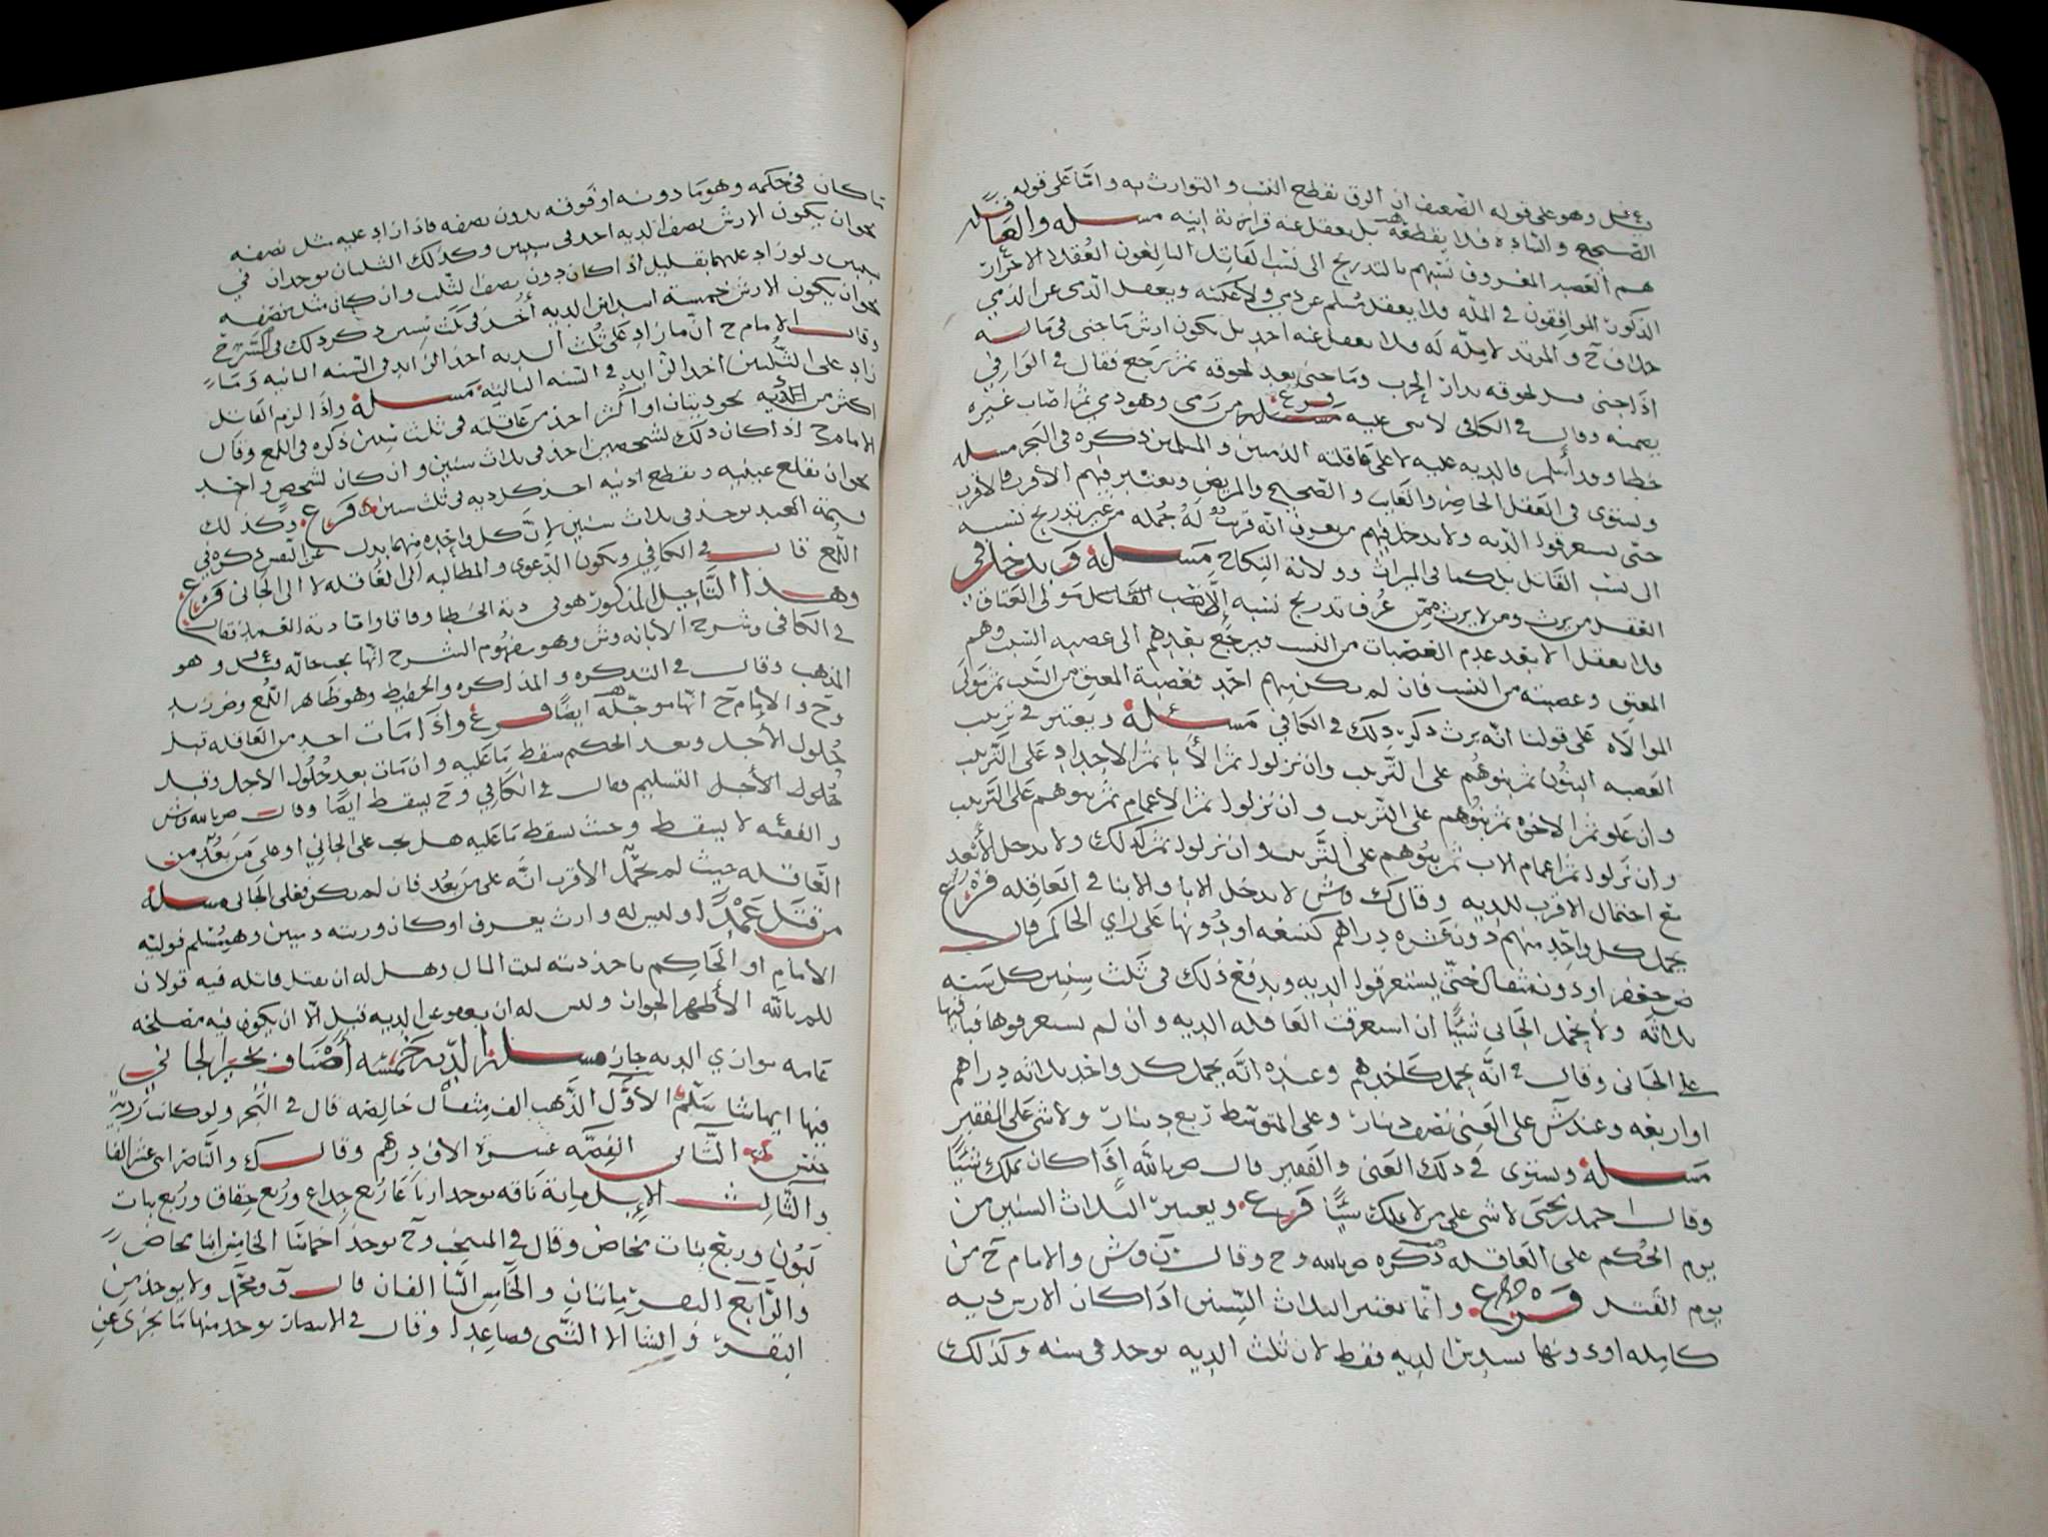 وهو على قوله الضعيف ان الرق يقطع النسب والتوارث به واما على قوله
الصحيح والساده فلا يقطعه بل يعقل عنه قرابة ابيه مسله والعاقله
هم العصبه المعروف نسبهم بالتدريج الى نسب القاتل البالغون العقلا الاحرار
الذكور الموافقون في المله فلا يعقل مسلم عن ذمي ولا عكسه ويعقل الذمي عن الذمي
خلاف ح والمرتد لا مله له فلا يعقل عنه احد بل يكون ارش ما جنى في ماله
اذا جنى قبل لحوقه بدار الحرب وما جنى بعد لحوقه ثم رجع فقال في الوافي
يضمنه وقال في الكافي لا شي عليه فرع مسله من رمى وهو ذمي ثم اصاب غيره
خطا وقد أسلم فالديه عليه لا على عاقلته الذميين والمسلمين ذكره في البحر مسله
ويستوي في العقل الحاضر والغايب والصحيح والمريض ويعتبر فيهم الاقرب فالاقرب
حتى يستغرقوا الديه ولا يدخل فيهم من يعرف انه قريب له جمله من غير تدريج نسبه
الى نسب القاتل بل كما في الميراث وولاية النكاح مسله ويدخل في
العقل من يرث ومن لا يرث ممن عرف تدريج نسبه الى نسب القاتل مولى العتاق
فلا يعقل الا بعد عدم العصبات من النسب فيرجع بعدهم الى عصبه السبب وهم
المعتق وعصبته من النسب فان لم يكن منهم احد فعصبة المعتق من السبب ثم مولى
الموالاه على قولنا انه يرث ذكر ذلك في الكافي مسله ويعتبر في ترتيب
العصبه البنون ثم بنوهم على الترتيب وان نزلوا ثم الأبا ثم الاجداد على الترتيب
وان علو ثم الاخوه ثم بنوهم على الترتيب وان نزلوا ثم الاعمام ثم بنوهم على الترتيب
وان نزلوا ثم اعمام الاب ثم بنوهم على الترتيب وان نزلوا ثم كذلك ولا يدخل الأبعد
مع احتمال الاقرب للديه وقال ك وش لا يدخل الابا والابنا في العاقله فرع
يحمل كل واحد منهم دون عشره دراهم كتسعه او دونها على راي الحاكم قال
ض جعفر او دون مثقال حتى يستغرقوا الديه ويدفع ذلك في ثلث سنين كل سنه
ثلاثه ولا يحمل الجاني شيئا ان استغرقت العاقله الديه وان لم يستغرقوها فباقيها
على الجاني وقال في انه يحمل كأحدهم وعنده انه يحمل كل واحد ثلاثه دراهم
او اربعه وعند ش على الغني نصف دينار وعلى المتوسط ربع دينار ولا شي على الفقير
مسله ويستوي في ذلك الغني والفقير قال ص بالله اذا كان يملك شيئا
وقال احمد بن يحيى لا شي على من لا يملك شيئا فرع ويعتبر الثلاث السنين من
يوم الحكم على العاقله ذكره ص بالله وح وقال ن وش والامام ح من
يوم القتل فرع وانما يعتبر الثلاث السنين اذا كان الارش ديه
كامله او دونها بسدس الديه فقط لان ثلث الديه يوخذ في سنه وكذلك
ما كان في حكمه وهو ما دونه او فوقه بدون نصفه فاذا زاد عليه مثل نصفه
نحو ان يكون الارش نصف الديه اخذ في سنتين وكذلك الثلثان يوخذان في
سنتين ولو زاد عليهما بقليل اذا كان دون نصف الثلث وان كان مثل نصفه
نحو ان يكون الارش خمسة اسداس الديه أخذ في ثلث سنين ذكر ذلك في الشرح
وقال الامام ح ان ما زاد على ثلث الديه اخذ الزايد في السنه الثانيه وما
زاد على الثلثين اخذ الزايد في السنه الثالثه مسله واذا لزم القاتل
اكثر من الديه نحو ديتان او اكثر اخذ من عاقلته في ثلث سنين ذكره في اللمع وقال
الامام ح اذا كان ذلك لشخصين اخذ في ثلاث سنين وان كان لشخص واحد
نحو ان يقلع عينيه ويقطع اذنيه اخذ كل ديه في ثلث سنين فرع وكذلك
قيمة العبد يوخذ في ثلاث سنين لان كل واحده منهما بدل عن النفس ذكره في
اللمع قال في الكافي ويكون الدعوى والمطالبه الى العاقله لا الى الجاني فرع
وهذا التاجيل المذكور هو في دية الخطا وفاقا واما دية العمد فقال
في الكافي وشرح الابانه وش وهو مفهوم الشرح انها يجب حاله وهو
المذهب وقال في التذكره والمذاكره والحفيظ وهو ظاهر اللمع وض زيد
وح والامام ح انها موجله ايضا فرع واذا مات احد من العاقله قبل
حلول الأجل وبعد الحكم سقط ما عليه وان مات بعد حلول الاجل وقبل
التسليم فقال في الكافي وح يسقط ايضا وقال ص بالله وش
والفقيه لا يسقط وحيث سقط ما عليه هل يجب على الجاني او على من بعد من
العاقله حيث لم تحمل الاقرب انه على من بعد فان لم يكن فعلى الجاني مسله
من قتل عمدا وليس له وارث يعرف او كان ورثته دميين وهو مسلم فوليه
الامام او الحاكم ياخذ ديته لبيت المال وهل له ان يقتل قاتله فيه قولان
للم بالله الأظهر الجواز وليس له ان يعفو عن الديه قيل الا ان يكون فيه مصلحه
عامه توازي الديه جاز مسله الديه خمسه أصناف يخير الجاني
فيها ايها شا سلم الأول الذهب الف مثقال خالصه قال في البحر ولو كانت رديه
جنس الثاني الفضه عشرة الاف درهم وقال ك والناصر اثنى عشر الفا
والثالث الإبل مائة ناقه يوخذ ارباعا ربع جذاع وربع حقاق وربع بنات
لبون وربع بنات مخاض وقال في المنتخب وح يوخذ اخماسا الخامس ابنا مخاض
والرابع البقر مائتان والخامس الشا الفان قال ف ومحمد ولا يوخذ من
البقر والشا الا الثني فصاعدا وقال في الانتصار يوخذ منها ما يجزي عن